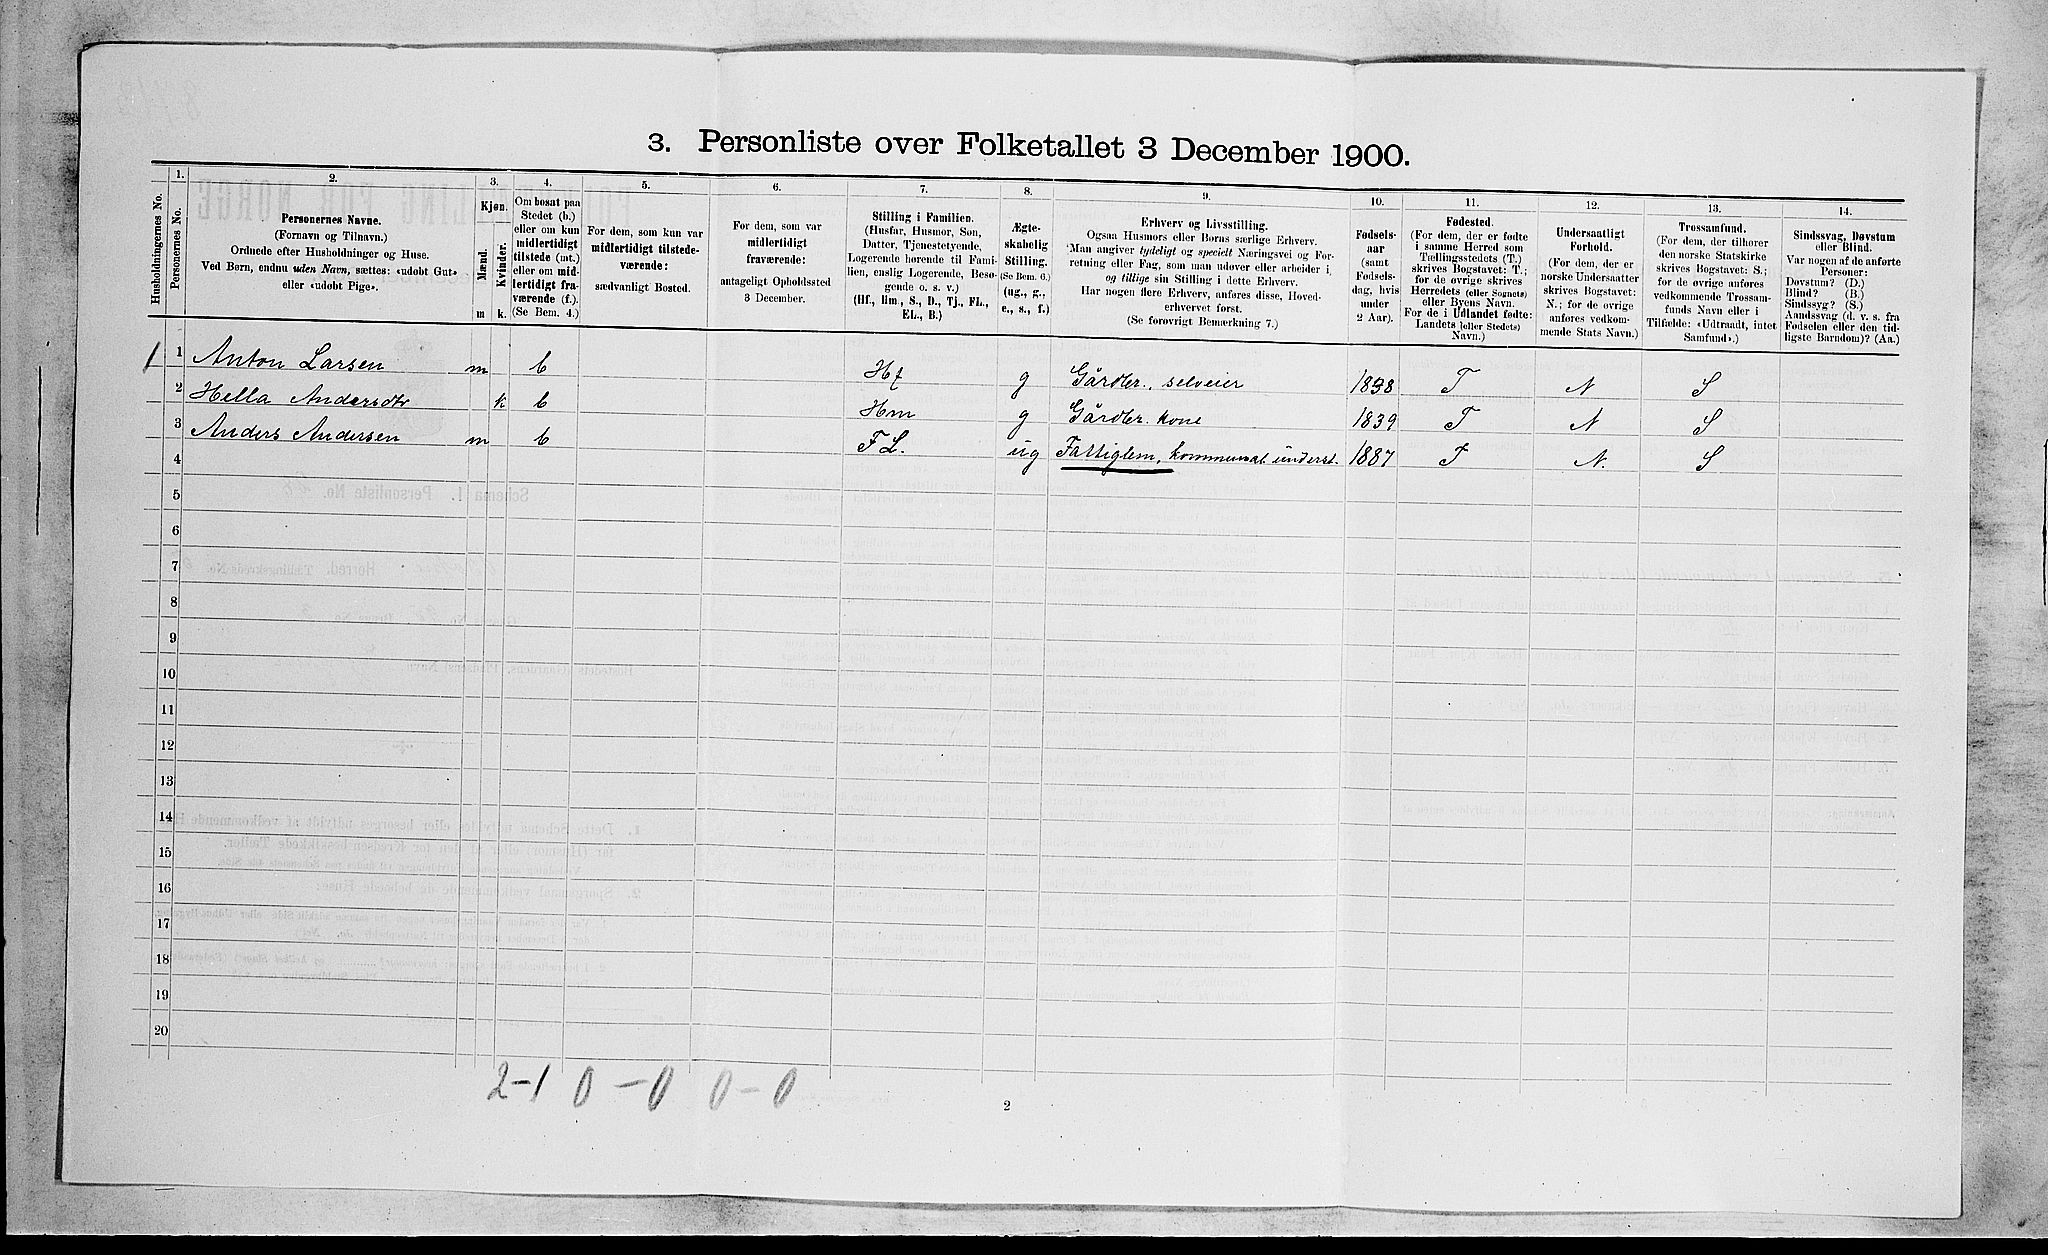 3. Personliste over Folketallet 3 December 1900.
Husholdningernes No.
1.
Personernes No.
2.
Personernes Navne.
(Fornavn og Tilnavn.)
Ordnede efter Husholdninger og Huse.
Ved Børn, endnu uden Navn, sættes: «udøbt Gut»
eller «udøbt Pige».
3.
Kjøn.
Mænd.
Kvinder.
m
k.
4.
Om bosat paa
Stedet (b.)
eller om kun
midlertidigt
tilstede (mt.)
eller om mid-
lertidigt fra-
værende (f.).
(Se Bem. 4.)
5.
For dem, som kun var
midlertidigt tilstede-
værende:
sædvanligt Bosted.
6.
For dem, som var
midlertidigt
fraværende:
antageligt Opholdssted
3 December.
7.
Stilling i Familien.
(Husfar, Husmor, Søn,
Datter, Tjenestetyende,
Logerende hørende til Fami-
lien, enslig Logerende, Besø-
gende o. s. v.)
(Hf., Hm., S., D., Tj., FL.,
EL., B.)
8.
Ægte-
skabelig
Stilling.
(Se Bem. 6.)
(ug., g.,
e., s., f.)
9.
Erhverv og Livsstilling.
Ogsaa Husmors eller Børns særlige Erhverv.
Man angiver tydeligt og specielt Næringsvei og For-
retning eller Fag, som man udøver eller arbeider i,
og tillige sin Stilling i dette Erhverv.
Har nogen flere Erhverv, anføres disse, Hoved-
erhvervet først.
(Se forøvrigt Bemærkning 7.)
10.
Fødsels-
aar
(samt
Fødsels-
dag, hvis
under
2 Aar).
11.
Fødested.
(For dem, der er fødte
i samme Herred som
Tællingsstedets (T.)
skrives Bogstavet: T.;
for de øvrige skrives
Herredets (eller Sognets)
eller Byens Navn.
For de i Udlandet fødte:
Landets (eller Stedets)
Navn.)
12.
Undersaatligt
Forhold.
(For dem, der er
norske Undersaatter
skrives Bogstavet:
N.; for de øvrige
anføres vedkom-
mende Stats Navn.)
13.
Trossamfund.
(For dem, der tilhører
den norske Statskirke
skrives Bogstavet: S.;
for de øvrige anføres
vedkommende Trossam-
funds Navn eller i
Tilfælde: «Udtraadt, intet
Samfund».)
14.
Sindssvag, Døvstum
eller Blind.
Var nogen af de anførte
Personer:
Døvstum? (D.)
Blind? (B.)
Sindssyg? (S.)
Aandssvag (d. v. s. fra
Fødselen eller den tid-
ligste Barndom)? (Aa.)
1 1 Anton Larsen m b Hf g Gårdbr., selveier 1838 T N S
2 Hella Andersdtr k b Hm g Gårdbr. kone 1839 T N S
3 Anders Andersen m b FL. ug Fattiglem, kommunal underst. 1887 T N. S
4
5
6
7
8
9
10
11
12
13
14
15
16
17
18
19
20
2-1 0-0 0-0
2